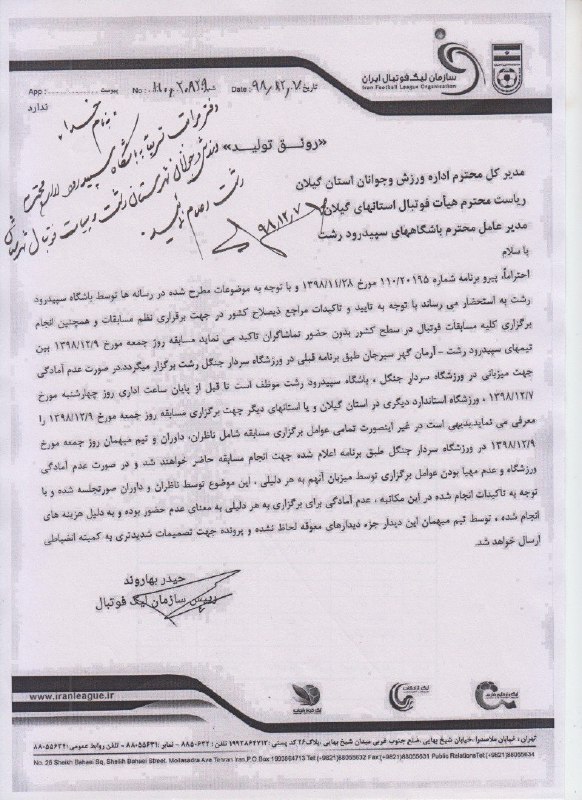 سازمان لیگ فوتبال ایران
Iran Football League Organization
تاریخ: Date: ۹۸,۱۲,۷ شماره: No: پیوست: App:
ندارد
بنام خدا
«رونق تولید»
۹۸,۱۲,۷
مدیر کل محترم اداره ورزش وجوانان استان گیلان
ریاست محترم هیأت فوتبال استانهای گیلان
مدیر عامل محترم باشگاههای سپیدرود رشت
با سلام
احتراماً، پیرو برنامه شماره ۱۱۰/۲۰۱۹۵ مورخ ۱۳۹۸/۱۱/۲۸ و با توجه به موضوعات مطرح شده در رسانه ها توسط باشگاه سپیدرود
رشت به استحضار می رساند با توجه به تایید و تاکیدات مراجع ذیصلاح کشور در جهت برقراری نظم مسابقات و همچنین انجام
برگزاری کلیه مسابقات فوتبال در سطح کشور بدون حضور تماشاگران تاکید می نماید مسابقه روز جمعه مورخ ۱۳۹۸/۱۲/۹ بین
تیمهای سپیدرود رشت – آرمان گهر سیرجان طبق برنامه قبلی در ورزشگاه سردار جنگل رشت برگزار میگردد.در صورت عدم آمادگی
جهت میزبانی در ورزشگاه سردار جنگل ، باشگاه سپیدرود رشت موظف است تا قبل از پایان ساعت اداری روز چهارشنبه مورخ
۱۳۹۸/۱۲/۷ ، ورزشگاه استاندارد دیگری در استان گیلان و یا استانهای دیگر جهت برگزاری مسابقه روز جمعه مورخ ۱۳۹۸/۱۲/۹ را
معرفی می نماید.بدیهی است در غیر اینصورت تمامی عوامل برگزاری مسابقه شامل ناظران، داوران و تیم میهمان روز جمعه مورخ
۱۳۹۸/۱۲/۹ در ورزشگاه سردار جنگل طبق برنامه اعلام شده جهت انجام مسابقه حاضر خواهند شد و در صورت عدم آمادگی
ورزشگاه و عدم مهیا بودن عوامل برگزاری توسط میزبان آنهم به هر دلیلی ، این موضوع توسط ناظران و داوران صورتجلسه شده و با
توجه به تاکیدات انجام شده در این مکاتبه ، عدم آمادگی برای برگزاری به هر دلیلی به معنای عدم حضور بوده و به دلیل هزینه های
انجام شده ، توسط تیم میهمان این دیدار جزء دیدارهای معوقه لحاظ نشده و پرونده جهت تصمیمات شدیدتری به کمیته انضباطی
ارسال خواهد شد.
حیدر بهاروند
رییس سازمان لیگ فوتبال
www.iranleague.ir
تهران، خیابان ملاصدرا، خیابان شیخ بهایی ،ضلع جنوب غربی میدان شیخ بهایی ،پلاک۲۶ کد پستی: تلفن: نمابر: ۸۸۰۵۵۶۳۱ - تلفن روابط عمومی:
No. 26 Sheikh Bahaei Sq, Sheikh Bahaei Street, Mollasadra Ave Tehran Iran.P.O.Box Tel:(+9821)88055632 Fax:(+9821)88055631 Public RelationsTel:(+9821)88055634